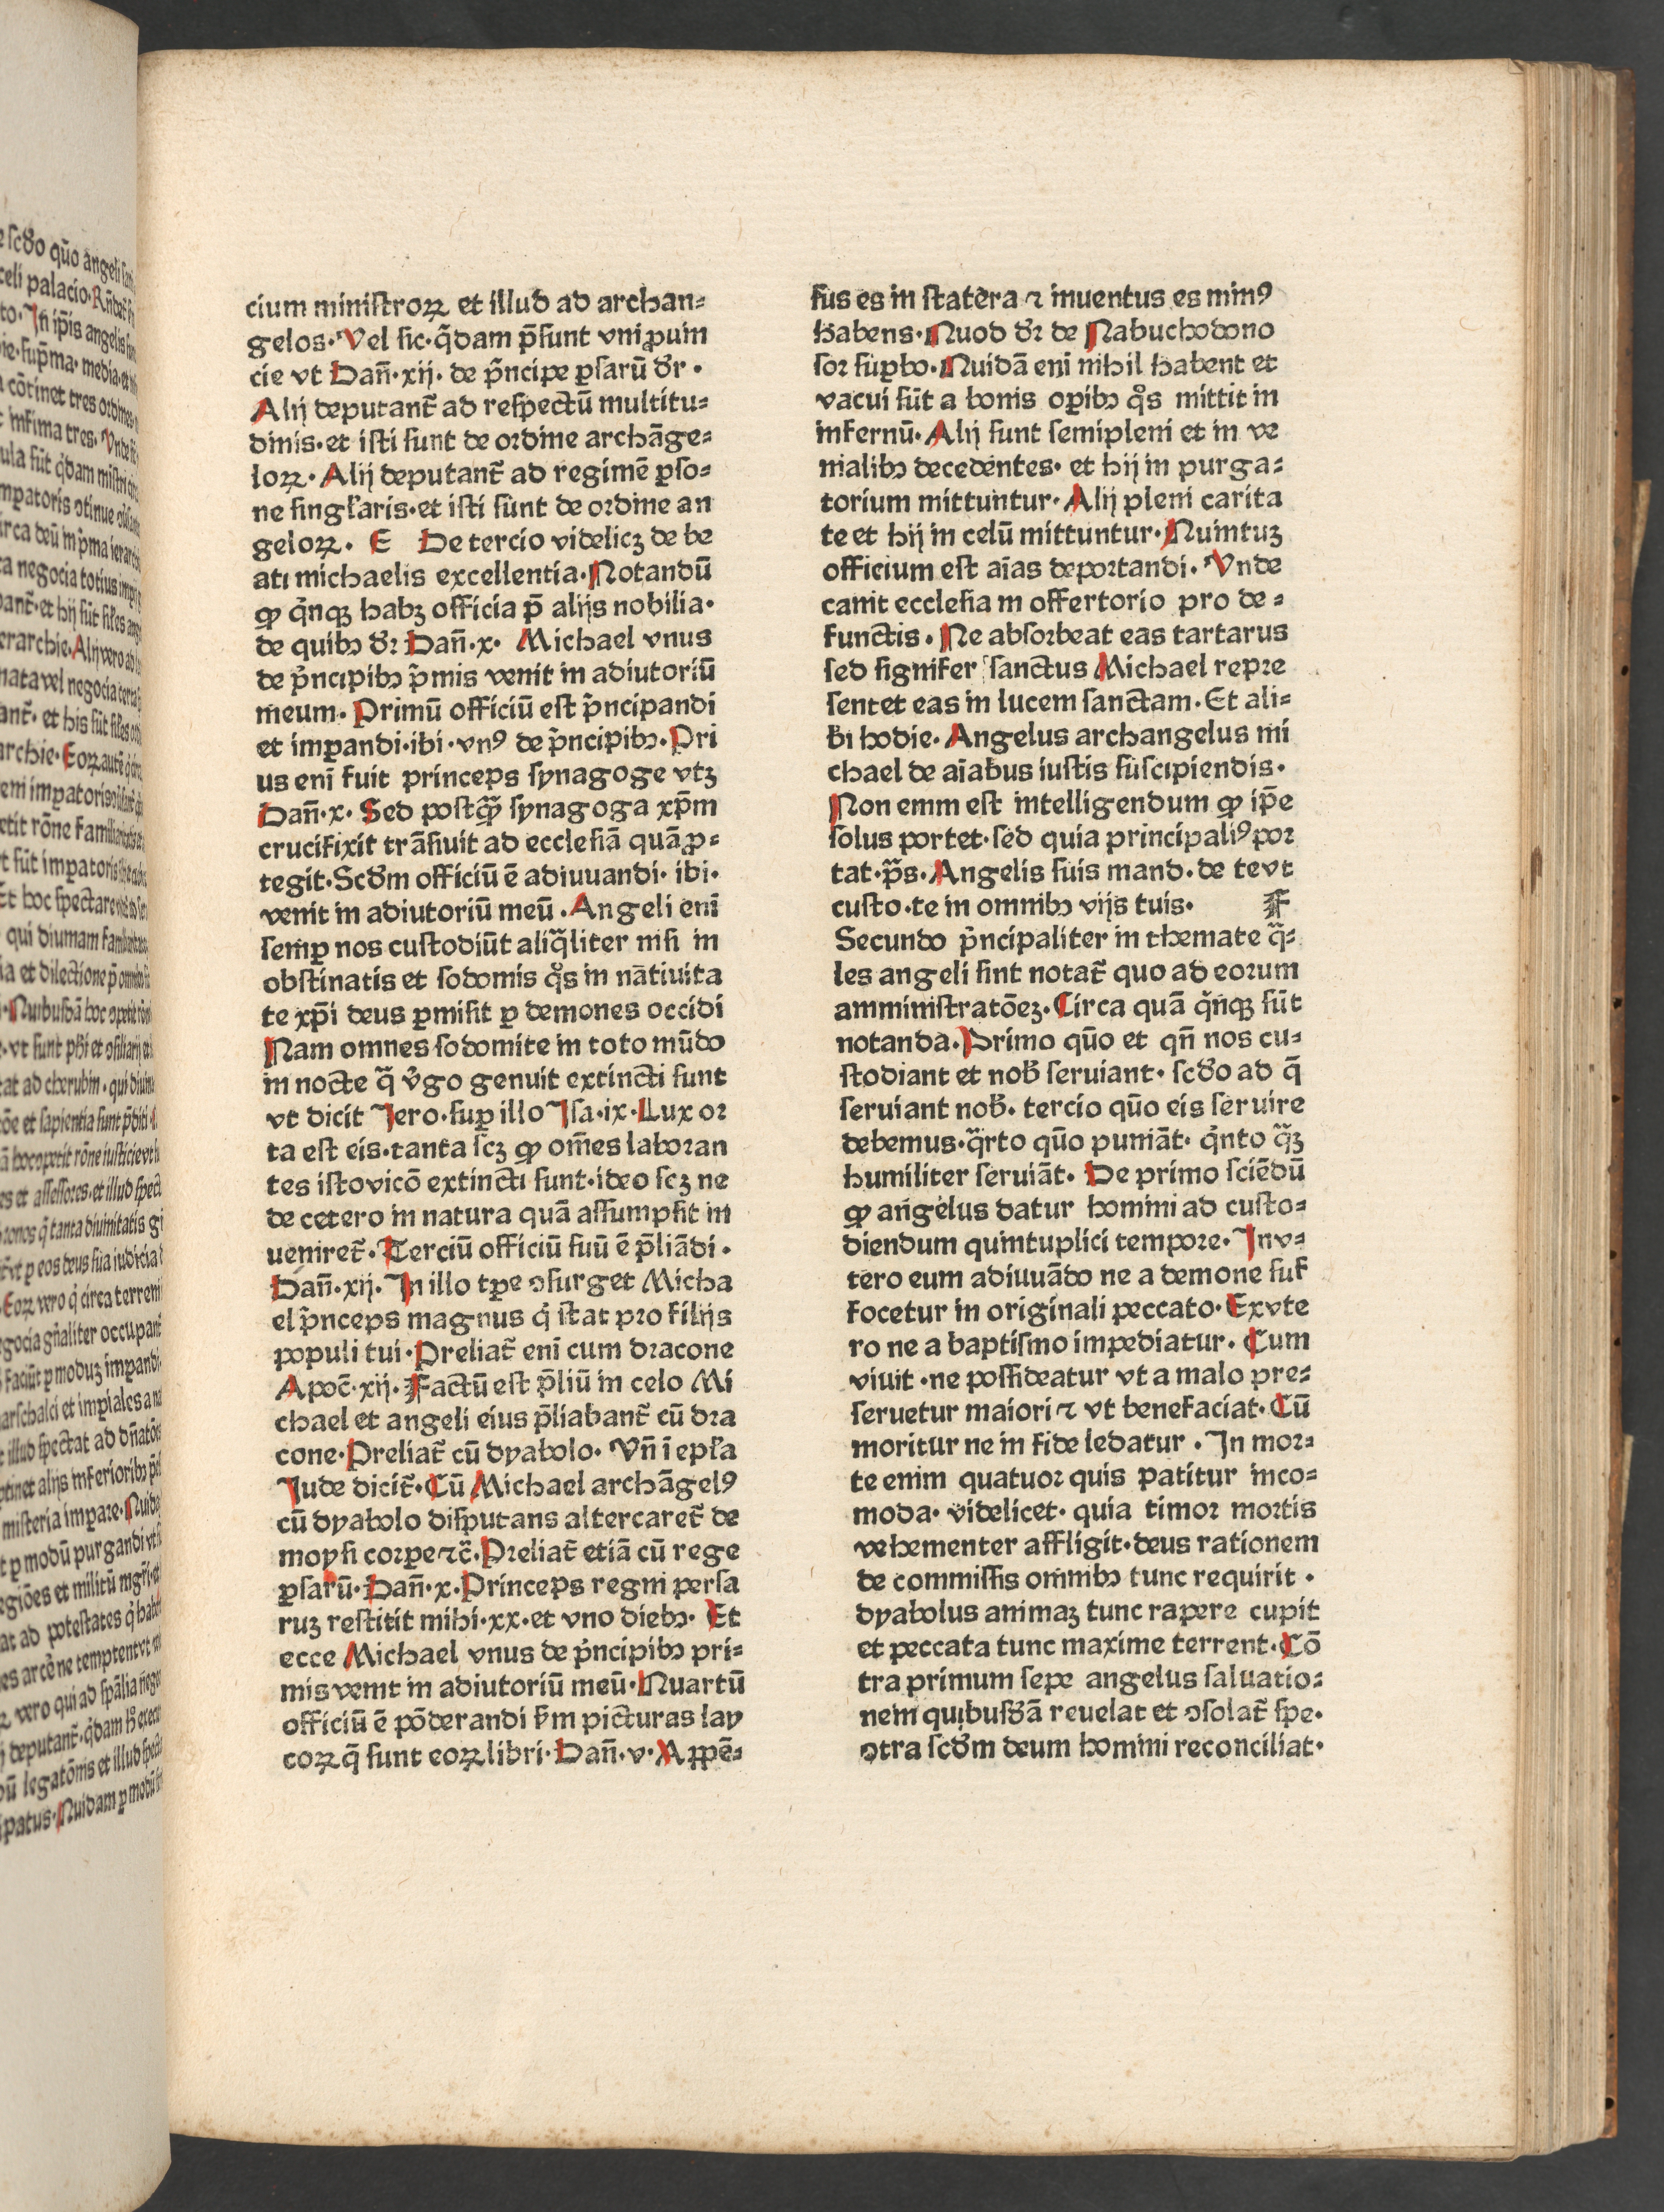 cium ministroꝝ et illud ad archan⸗
gelos. Vel sic. q̃dam p̄sunt vni ꝓuin
cie vt Dañ. xij. de p̃ncipe ꝑsarū dr̄.
Alij deputant̃ ad respectū multitu⸗
dinis. et isti sunt de ordine archāge⸗
loꝝ. Alij deputant̃ ad regimē ꝑso⸗
ne singl̓aris. et isti sunt de ordine an
geloꝝ. E De tercio videlicꝫ de be
ati michaelis excellentia. Notandū
ꝙ q̇nqꝫ habꝫ officia p̄ alijs nobilia.
de quibꝰ dr̄ Dañ. x. Michael vnus
de p̃ncipibꝰ p̃mis venit in adiutoriū
meum. Primū officiū est p̃ncipandi
et imꝑandi. ibi. vnꝰ de p̃ncipibꝰ. Pri
us eni᷈ fuit princeps synagoge vtꝫ
Dañ. x. Sed postꝙ̃ synagoga xp̄m
crucifixit trāsiuit ad ecclesiā quā ꝓ⸗
tegit. Scd̓m officiū ē adiuuandi. ibi.
venit in adiutoriū meū. Angeli eni᷈
semꝑ nos custodiūt aliq̃liter nisi in
obstinatis et sodomis q̊s in nātiuita
te xp̄i deus ꝑmisit ꝑ demones occidi
Nam omnes sodomite in toto mūdo
in nocte q̃ v̓go genuit extincti sunt
vt dicit Jero. suꝑ illo Jsa. ix. Lux or
ta est eis. tanta scꝫ ꝙ om̄es laboran
tes isto vicō extincti sunt. ideo scꝫ ne
de cetero in natura quā assumpsit in
ueniret̃. Terciū officiū suū ē p̄liādi.
Dañ. xij. Jn illo tꝑe ɔsurget Micha
el p̃nceps magnus q̇ stat pro filijs
populi tui. Preliat̃ eni᷈ cum dracone
Apoc̃. xij. Factū est p̄liū in celo Mi
chael et angeli eius p̄liabant̃ cū dra
cone. Preliat̃ cū dyabolo. Vn̄ ī epl̓a
Jude dicit̃. Cū Michael archāgelꝰ
cū dyabolo disputans altercaret̃ de
moysi corpe ⁊c̃. Preliat̃ etiā cū rege
ꝑsarū. Dañ. x. Princeps regni persa
ruꝫ restitit mihi. xx. et vno diebꝰ. Et
ecce Michael vnus de p̃ncipibꝰ pri⸗
mis venit in adiutoriū meū. Quartū
officiū ē pōderandi s̓m picturas lay
coꝝ q̄ sunt eoꝝ libri. Dañ. v. Appē⸗
sus es in statera ⁊ inuentus es minꝰ
habens. Quod dr̄ de Nabuchodono
sor suꝑbo. Quidā eni᷈ nihil habent et
vacui sūt a bonis oꝑibꝰ q̊s mittit in
infernū. Alij sunt semipleni et in ve
nialibꝰ decedentes. et hij in purga⸗
torium mittuntur. Alij pleni carita
te et hij in celū mittuntur. Quintuꝫ
officium est aīas deportandi. Vnde
canit ecclesia in offertorio pro de⸗
functis. Ne absorbeat eas tartarus
sed signifer sanctus Michael repre
sentet eas in lucem sanctam. Et ali⸗
b̓i hodie. Angelus archangelus mi
chael de aīabus iustis suscipiendis.
Non enim est intelligendum ꝙ ip̄e
solus portet. sed quia principaliꝰ por
tat. p̃s. Angelis suis mand. de te vt
custo. te in omnibꝰ vijs tuis. F
Secundo p̃ncipaliter in themate q̃⸗
les angeli sint notat̃ quo ad eorum
amministratōeꝫ. Circa quā q̇nqꝫ sūt
notanda. Primo quō et qn̄ nos cu⸗
stodiant et nob̓ seruiant. scd̓o ad q̄
seruiant nob̓. tercio quō eis seruire
debemus. q̃rto quō puniāt. q̇nto q̃ꝫ
humiliter seruiāt. De primo sciēdū
ꝙ angelus datur homini ad custo⸗
diendum quintuplici tempore. Jn v⸗
tero eum adiuuādo ne a demone suf
focetur in originali peccato. Ex vte
ro ne a baptismo impediatur. Cum
viuit. ne possideatur vt a malo pre⸗
seruetur maiori ⁊ vt benefaciat. Cū
moritur ne in fide ledatur. Jn mor⸗
te enim quatuor quis patitur inco⸗
moda. videlicet. quia timor mortis
vehementer affligit. deus rationem
de commissis omnibꝰ tunc requirit.
dyabolus animaꝫ tunc rapere cupit
et peccata tunc maxime terrent. Cō
tra primum sepe angelus saluatio⸗
nem quibusd̓ā reuelat et ɔsolat̃ spe.
ɔtra scd̓m deum homini reconciliat.